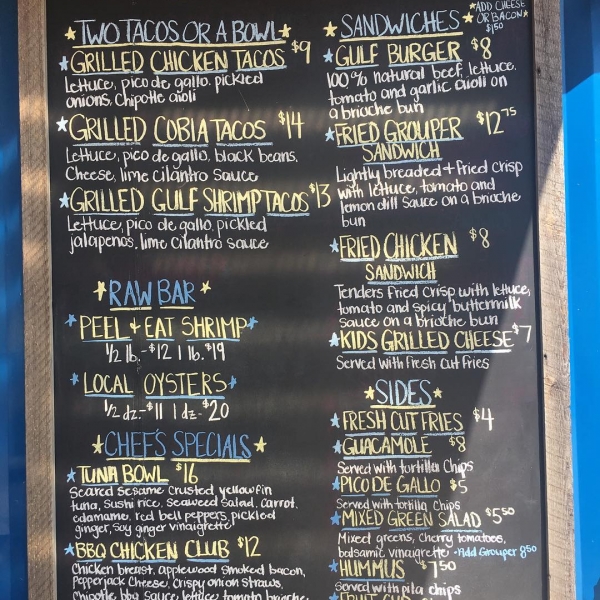 TWO TACOS OR A BOWL
GRILLED CHICKEN TACOS $9
Lettuce, pico de gallo, pickled
onions, Chipotle aioli
GRILLED COBIA TACOS $14
Lettuce, pico de gallo, black beans,
Cheese, lime cilantro sauce
GRILLED GULF SHRIMP TACOS $13
Lettuce, pico de gallo, pickled
jalapenos, lime Cilantro sauce
RAW BAR
PEEL + EAT SHRIMP
1/2 lb.-$12 1 lb. $19
LOCAL OYSTERS
1/2 dz.-$11 1 dz-$20
CHEF'S SPECIALS
TUNA BOWL $16
Seared Sesame Crusted yellowfin
tuna, Sushi rice, seaweed salad, carrot,
edamame, red bell peppers, pickled
ginger, Soy ginger vinaigrette
BBQ CHICKEN CLUB $12
Chicken breast, applewood smoked bacon,
Pepperjack Cheese, Crispy onion straws,
Chipotle bbq Sauce, lettuce, tomato, brioche
SANDWICHES
ADD CHEESE
OR BACON
$1.50
GULF BURGER $8
100% natural beef, lettuce,
tomato and garlic aioli on
a brioche bun
FRIED GROUPER $12.75
SANDWICH
Lightly breaded + fried crisp
with lettuce, tomato and
lemon dill sauce on a brioche
bun
FRIED CHICKEN $8
SANDWICH
Tenders fried Crisp with lettuce,
tomato and spicy buttermilk
sauce on a brioche bun
KIDS GRILLED CHEESE $7
Served with fresh cut fries
SIDES
FRESH CUT FRIES $4
GUACAMOLE $8
Served with tortilla chips
PICO DE GALLO $5
Served with tortilla Chips
MIXED GREEN SALAD $5.50
Mixed greens, cherry tomatoes,
balsamic vinaigrette -Add Grouper 8.50
HUMMUS $7.50
Served with pita chips
FRUIT CUP